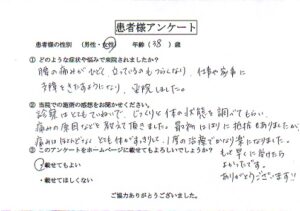 患者様アンケート
患者様の性別 (男性・女性) 年齢 (38) 歳
① どのような症状や悩みで来院されましたか?
腰の痛みがひどく、立っているのもつらくなり、仕事や家事に
支障をきたすようになり、来院しました。
② 当院での施術の感想をお聞かせください。
診察はとてもていねいで、じっくりと体の状態を調べてもらい、
痛みの原因などを教えて頂きました。最初ははりに抵抗もありましたが、
痛みはほとんどなく、とても体がすっきりし、1度の治療でかなり楽になりました。
③ このアンケートをホームページに載せてもよろしいでしょうか?
もっと早くに受けたら
よかったです。
ありがとうございます!!
・載せてもよい
・載せてほしくない
ご協力ありがとうございました。